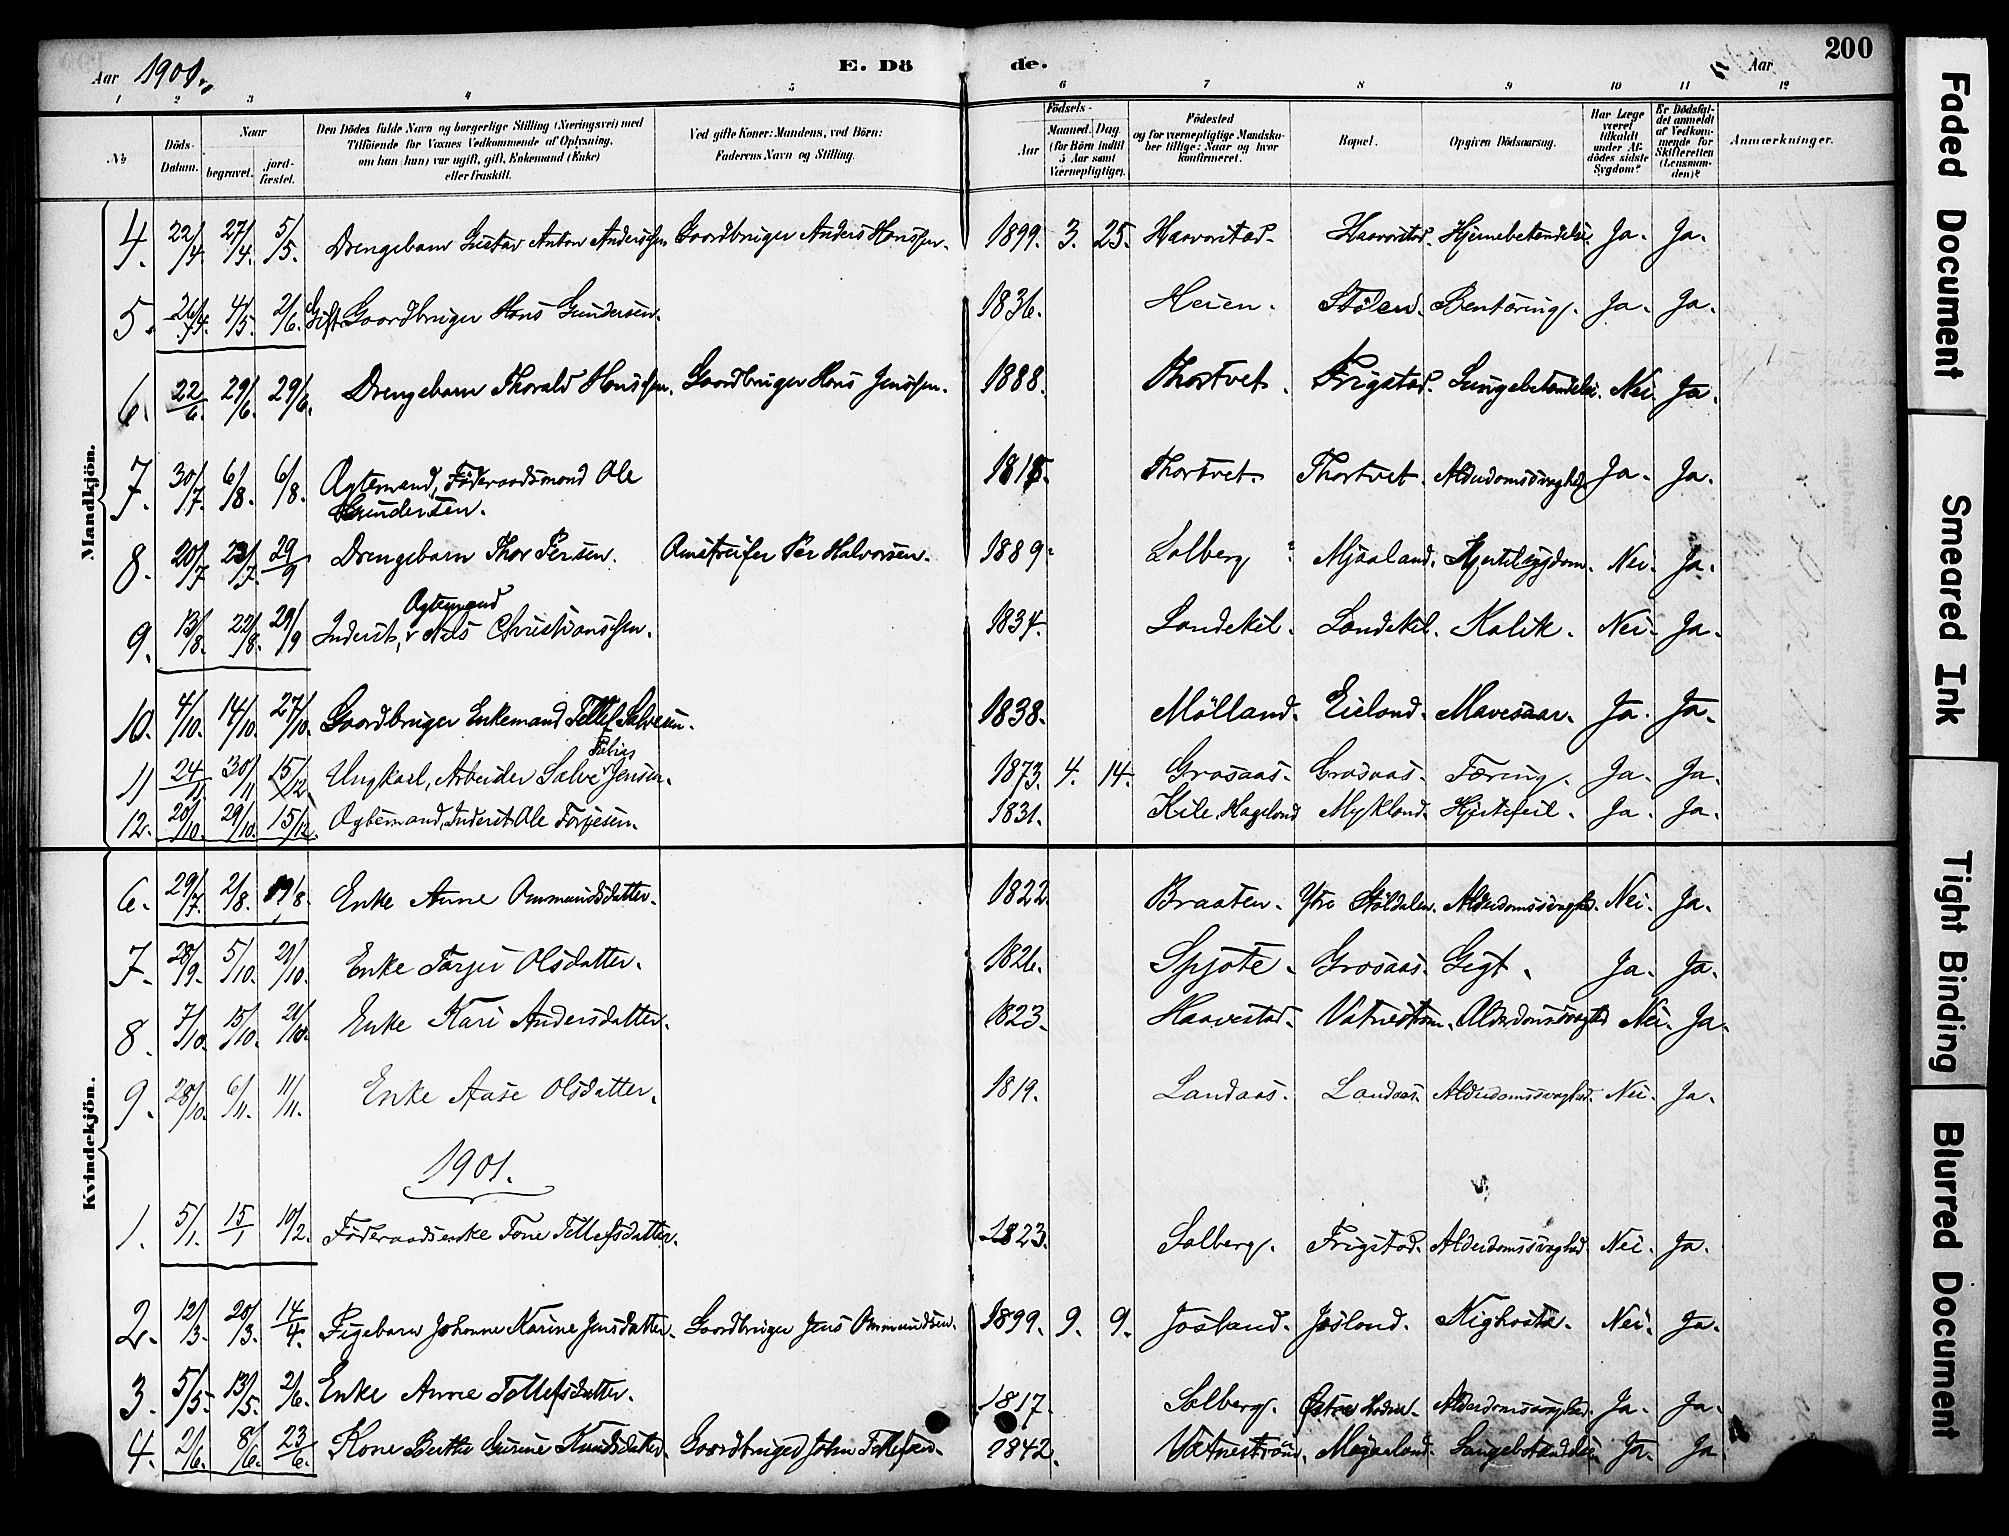 Aar 1901.
E. Dö
de.
Aar
200
1 2 3 4 5 6 7 8 9 10 11 12
№
Döds-Datum.
Naar
begravet.
jord-fæstet.
Den Dödes fulde Navn og borgerlige Stilling (Næringsvei) med
Tilföiende for Voxnes Vedkommende af Oplysning,
om han (hun) var ugift, gift, Enkemand (Enke)
eller fraskilt.
Ved gifte Koner: Mandens, ved Börn:
Faderens Navn og Stilling.
Födsels-
Aar
Maaned. Dag
(for Börn indtil
5 Aar samt
Værnepligtige).
Födested
og for værnepligtige Mandska-
ber tillige: Naar og hvor
konfirmeret.
Bopæl.
Opgiven Dödsaarsag.
Har Læge
været
tilkaldt
under Af-
dödes sidste
Sygdom?
Er Dödsfal-
det anmeldt
af Vedkom-
mende for
Skifteretten
(Lensman-
den)?
Anmærkninger.
Mandkjön.
4. 22/4. 27/4. 5/5. Drengebarn Gustav Anton Anderssen Gaardbruger Anders Hanssen. 1899. 3. 25. Haavorstad. Haavorstad. Hjernebetændelse. Ja. Ja.
5. 26/4. 4/5. 2/6. Gift Gaardbruger Hans Gundersen. 1836. Heien. Stölen. Bentæring. Ja. Ja.
6. 22/6. 29/6. 29/6. Drengebarn Thorald Hanssen. Gaardbruger Hans Jenssen. 1888. Thortvet. Frigstad. Lungebetændelse. Nei. Ja.
7. 30/7. 6/8. 6/8. Ægtemand, Föderaadsmand Ole
Gundersen. 1818. Thortvet. Thortvet. Alderdomssvaghed. Ja. Ja.
8. 20/7 23/7. 29/9 Drengebarn Thor Persen. Omstreifer Per Halvorsen. 1889. Solberg ? Mjaaland. Hjertesygdom. Nei. Ja.
9. 13/8. 22/8. 29/9 Inderst, Ægtemand Nils Christianssen. 1834. Landekil. Landekil. Kolik. Nei. Ja.
10. 4/10. 14/10. 27/10. Gaardbruger Enkemand Tellef Salvesen. 1838. Mölland. Eieland. Mavesaar. Ja. Ja.
11 24/11 30/11 15/12. Ungkarl, Arbeider Salve Tobias Jensen. 1873. 4. 14. Grosaas. Grosaas. Tæring. Ja. Ja.
12. 20/10. 29/10. 15/12. Ægtemand, Inderst Ole Torjesen. 1831. Kile, Hægeland Mykland. Hjertefeil. Ja. Ja.
Kvindekjön.
6. 29/7. 2/8. 19/8. Enke Anne Ommundsdatter. 1822. Braaten. Ytre Stöldalen. Alderdomssvaghed. Nei. Ja.
7. 28/9. 5/10. 21/10. Enke Torjer Olsdatter. 1826. Spjote. Grosaas. Gigt. Ja. Ja.
8. 7/10. 15/10. 21/10. Enke Kari Andersdatter. 1823. Haavestad. Vatneström. Alderdomssvaghed Nei. Ja.
9. 28/10. 6/11. 11/11. Enke Aase Olsdatter. 1819. Landaas. Landaas. Alderdomssvaghed. Nei. Ja.
1901.
1. 5/1. 15/1 10/2. Föderaadsenke Tone Tellefsdatter. 1823. Solberg. Frigstad. Alderdomssvaghed. Nei. Ja.
2. 12/3. 20/3. 14/4. Pigebarn Johanne Marine Jensdatter. Gaardbruger Jens Ommundsen. 1899. 9. 9. Josland. Josland. Kighoste. Nei. Ja.
3. 5/5. 13/5. 2/6. Enke Anne Tellefsdatter. 1817. Solberg. Alderdomssvaghed. Ja. Ja.
4. 2/6. 8/6. 23/6. Kone Berthe Gurine Knudsdatter. Gaardbruger John Tellefsen. 1842. Vatneström. Lungebetændelse. Ja. Ja
Faded Document
Smeared Ink
Tight Binding
Blurred Document